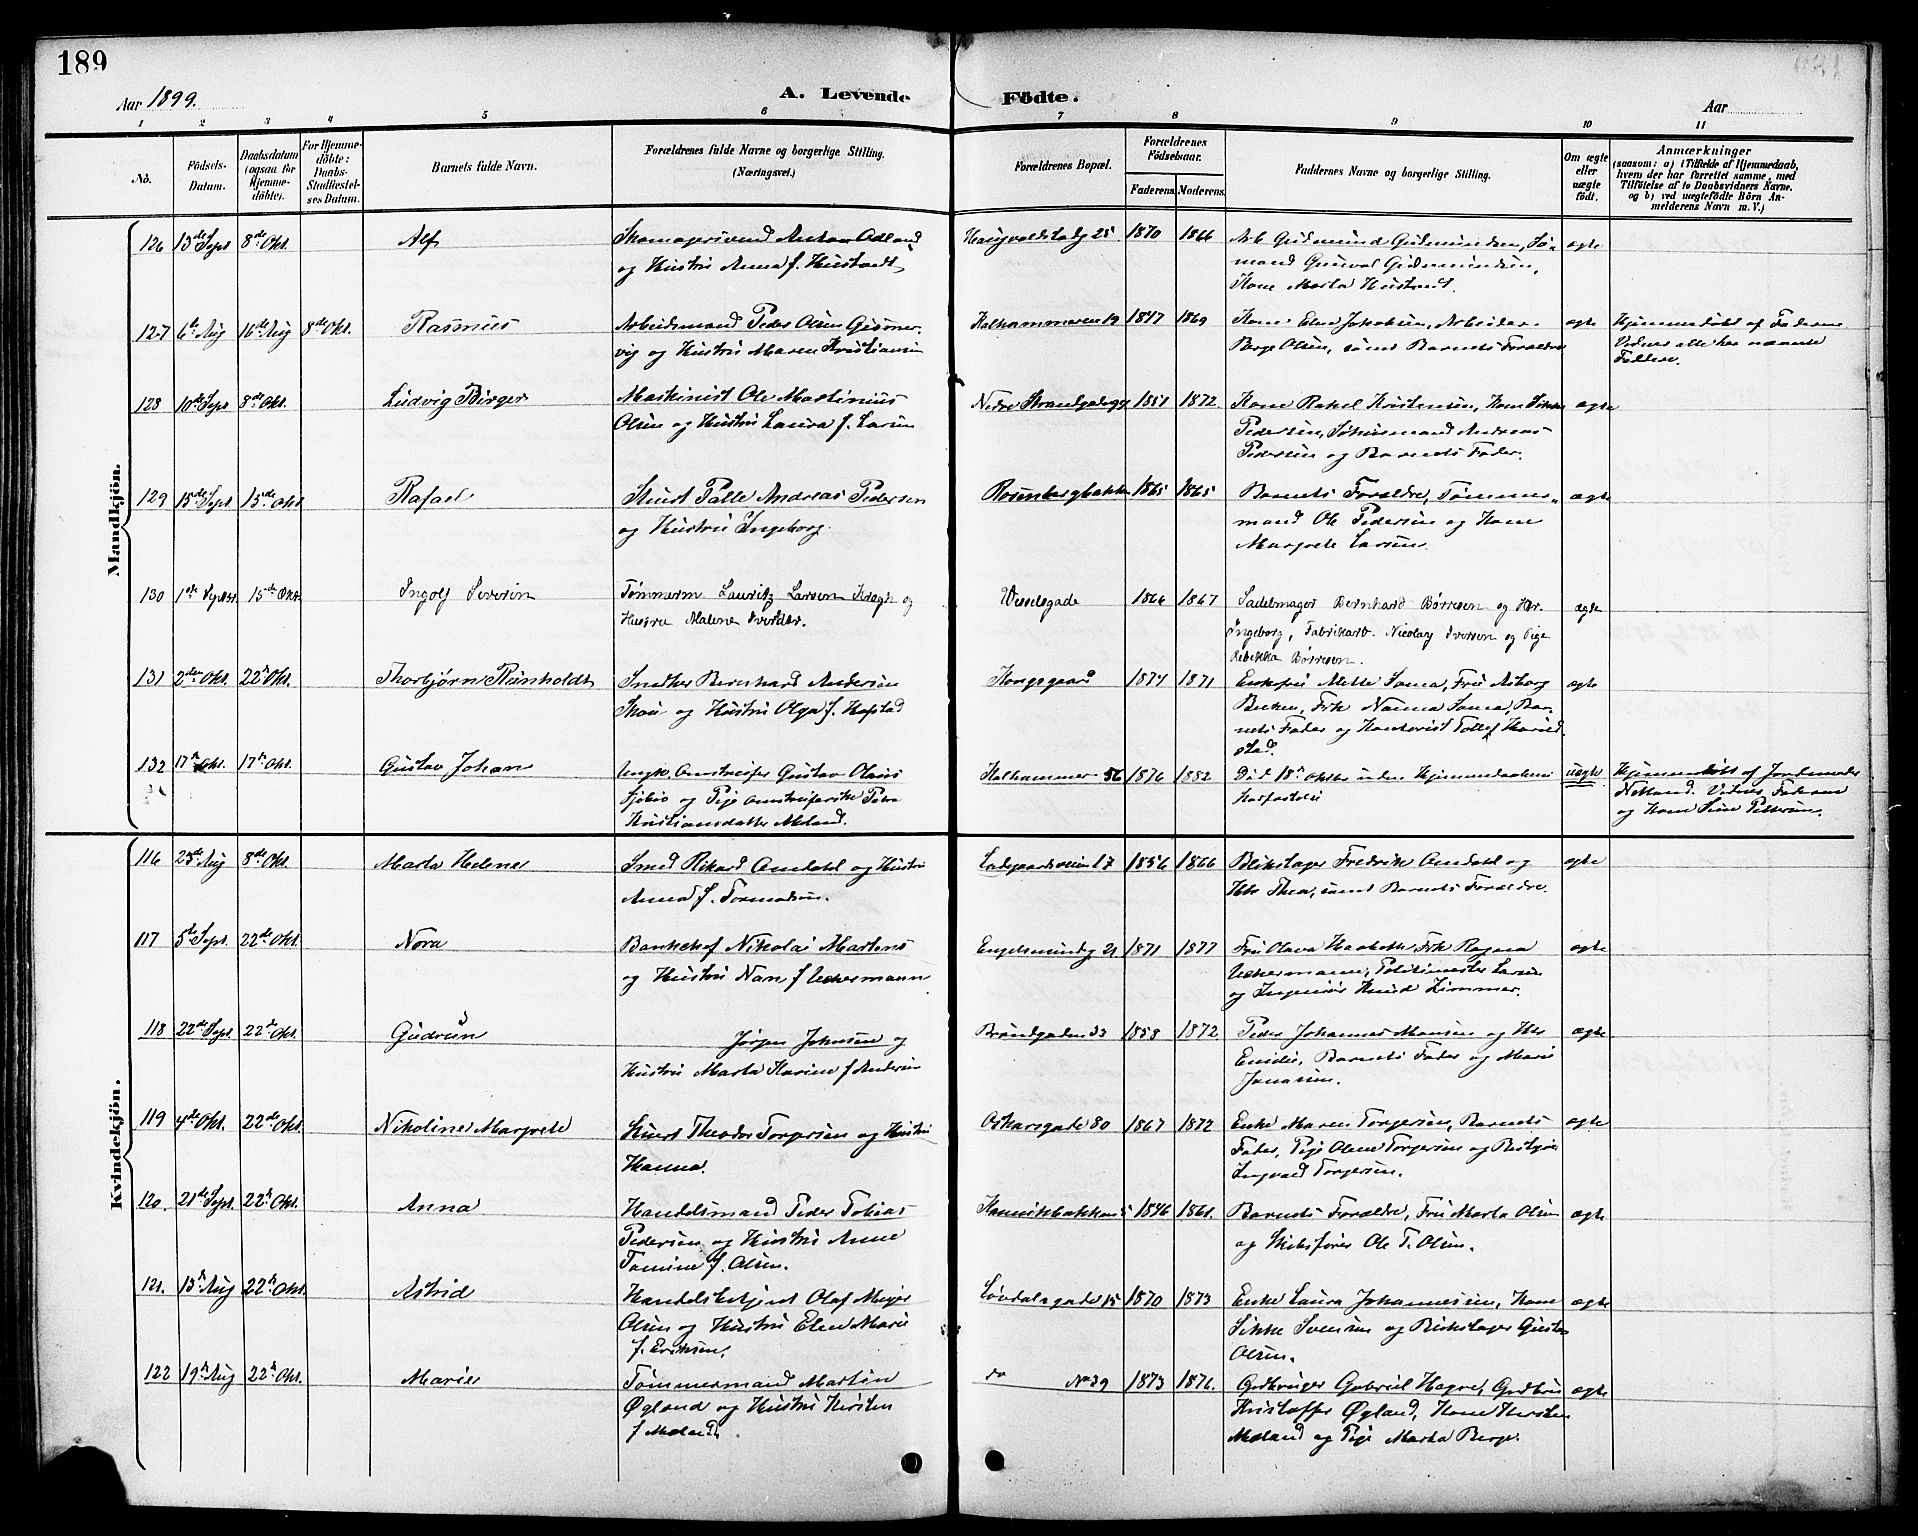 189
Aar 1899.
A. Levende Födte.
Aar
1 2 3 4 5 6 7 8 9 10 11
No.
Födsels-Datum.
Daabsdatum (ogsaa for Hjemmedöbte).
For Hjemmedöbte: Daabs-Stadfæstelses Datum.
Barnets fulde Navn.
Forældrenes fulde Navne og borgerlige Stilling.
(Næringsvei.)
Forældrenes Bopæl.
Forældrenes Födselsaar.
Faderens. Moderens.
Faddernes Navne og borgerlige Stilling.
Om ægte eller uægte födt.
Anmærkninger
(saasom: a) i Tilfælde af Hjemmedaab, hvem der har forrettet samme, med Tilföielse af to Daabsvidners Navne, og b) ved uægtefödte Börn Anmelderens Navn m. V.)
Mandkjön.
126 13de Sept 8de Okt. Alf
og Hustru Anna f. Hustvedt
25 1870 1866
Arb Gudmund Gudmundsen, Sö-
mand Gunval Gudmundsen,
Kone Marta Hustvedt.
ægte
127 6te Aug 16de Aug 8de Okt. Rasmus
Arbeidsmand Peder Olsen Gismer-
vig og Hustru Maren Kristiansen
Kalhammeren 19 1847 1869
Kone Elen Jakobsen, Arbeider
Berge Olsen, samt Barnets Forældre
ægte
Hjemmedöbt af Faderen
Vidner alle her nævnte
Faddere.
128 10de Sept 8de Okt. Ludvig Birger
Maskinist Ole Martinius
Olsen og Hustru Laura f. Larsen
Nedre Strandgade 1851 1872.
Kone Rakel Kristensen, Kone Sikke
Pedersen, Andreas
Pedersen og Barnets Fader.
ægte
129 15de Sept 15de Okt Rafael
Stuert Palle Andreas Pedersen
og Hustru Ingeborg.
Rosenbergbakken 1865 1865
Barnets Forældre, Tömmer-
mand Ole Pedersen og Kone
Margrete Larsen.
ægte
130 1ste Septbr. 15de Okt. Ingolf Severin
Tömmerm Lauritz Larsen Kragh og
Hustru Malene Iversdtr.
Wesselsgade 1866 1867
Sadelmager Bernhard Börresen og Hr.
Ingeborg, Fabrikarb. Nicolay Iversen og Pige
Rebekka Börresen.
ægte
131 2den Okt. 22 Okt. Thorbjörn Reinholdt
Snedker Bernhard Andersen
Skou og Hustru Olga f. Hofstad
Kongsgaard 1874 1871
Enkefru Mette Soma, Fru Aasborg
Frk Nanna Soma, Bar-
nets Fader og Kontorist Tollef Harild-
stad.
ægte
132 17de Okt. 17de Okt. Gustav Johan
Ungk. Gustav Olaus
Sjöbis og Pige Petra
Kristiansdatter Meland.
Kalhammer 56 1876 1882
Död 18de Oktbr uden Hjemmedaabens
Stadfæstelse
uægte
Hjemmedöbt af Jordemoder
Netland. Vidner Faderen
og Kone Sine Pedersen.
Kvindekjön.
116 23de Aug 8de Okt. Marta Helene
Smed Rikard Omdahl og Hustru
Anna f. Tormodsen.
Ladegaardsveien 17 1856 1866
Blikslager Fredrik Omdahl og
Hr Thea, samt Barnets Forældre.
ægte
117 5te Sept. 22de Okt. Nora
Bankchef Nikolai Martens
og Hustru Nan f Uchermann
Engelsmindeg 21 1871 1877
Fru Olava Frk Ragna
Uchermann, Politimester Larsen
og Ingeniör Knud Zimmer.
ægte
118 22de Sept. 22de Okt. Gudrun
Jörgen Johnsen og
Hustru Marta Karine f Andersen
Bröndgaden 33 1858 1872
Peder Johannes Monsen og Hr
Emilie, Barnets Fader og Marie
Jonassen.
ægte
119 4de Okt. 22de Okt. Nikoline Margrete
Stuert Theodor Torgersen og Hustru
Hanna.
Oskarsgade 80 1867 1872
Enke Maren Torgersen, Barnets
Fader, Pige Oline Torgersen og
Ingvald Torgersen.
ægte
120. 21de Sept. 22de Okt. Anna
Handelsmand Peder Tobias
Pedersen og Hustru Anne
Tomine f. Olsen.
Kannikbakken 5 1846 1861.
Barnets Forældre, Fru Marta Olsen
og Skibsförer Ole T. Olsen.
ægte
121. 13de Aug 22de Okt. Astrid
Handelsbetjent Olaf Meyer
Olsen og Hustru Elen Marie
f. Eriksen.
Lövdalsgade 15 1870 1873
Enke Laura Johannesen, Kone
Sikke Svensen og Blikslager Gustav
Olsen.
ægte
122 19de Aug 22de Okt. Marie
Tömmermand Martin
Ögland og Hustru Kirsten
f Meland.
do No 39 1873 1876.
Gdbruger Gabriel Hogne, Gdbru
Kristoffer Ögland, Kone Kirsten
Meland og Pige Marta Berge.
ægte